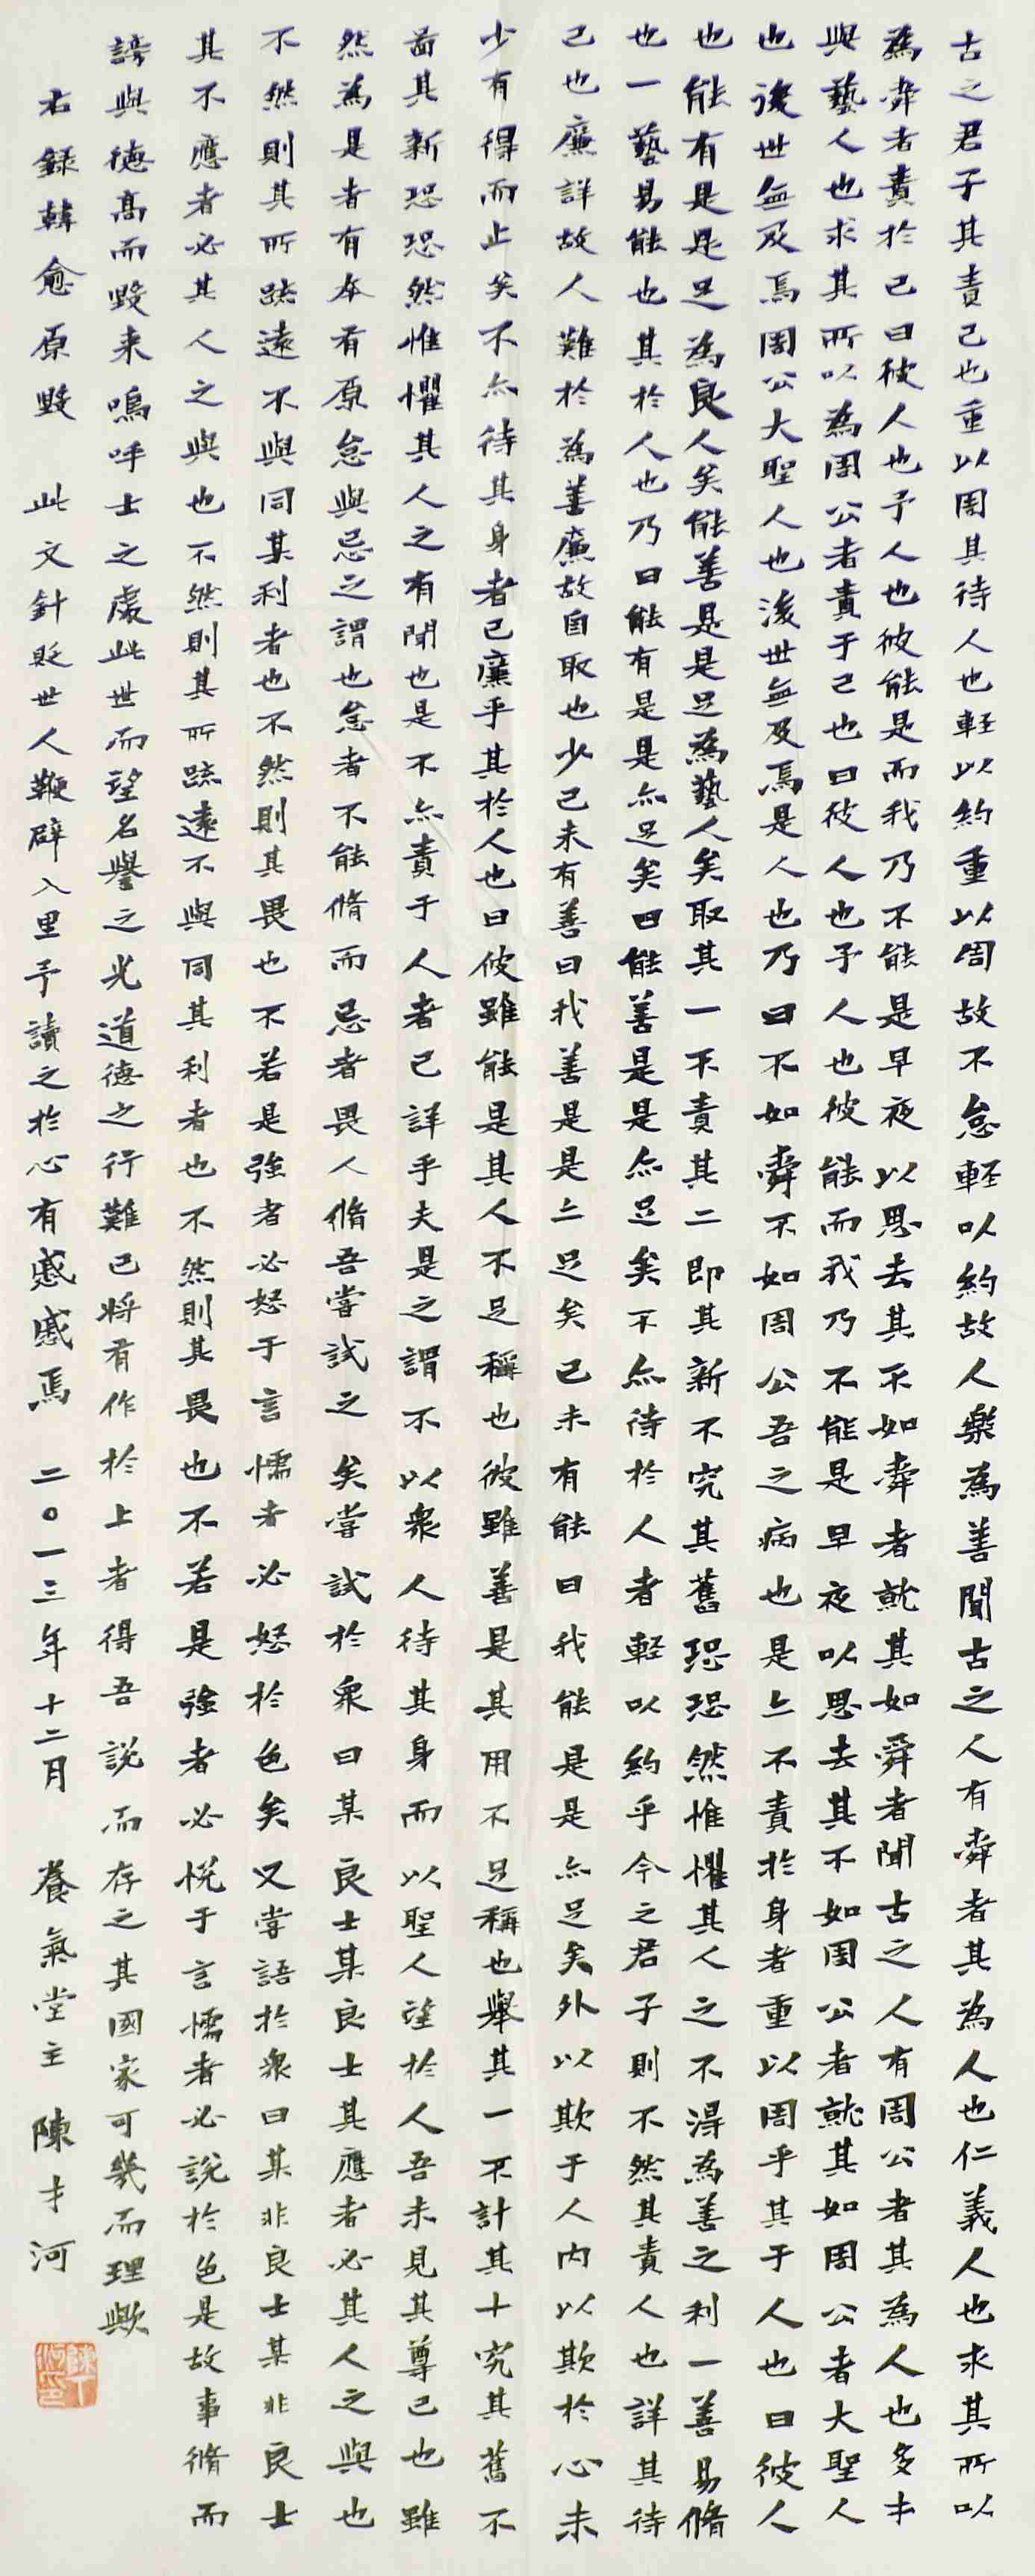 古之君子其責己也重以周其待人也軽以約重以周故不怠軽以約故人樂為善聞古之人有舜者其為人也仁義人也求其所以
為舜者責於己曰彼人也予人也彼能是而我乃不能是早夜以思去其不如舜者就其如舜者聞古之人有周公者其為人也多才
與藝人也求其所以為周公者責于己也曰彼人也予人也彼能而我乃不能是早夜以思去其不如周公者就其如周公者大聖人
也後世無及焉周公大聖人也後世無及焉是人也乃曰不如舜不如周公吾之病也是亦不責於身者重以周乎其于人也曰彼人
也能有是是足為良人矣能善是是足為藝人矣取其一不責其二即其新不究其舊恐恐然惟懼其人之不得為善之利一善易脩
也一藝易能也其於人也乃曰能有是是亦足矣曰能善是是亦足矣不亦待於人者軽以約乎今之君子則不然其責人也詳其待
己也廉詳故人難於為善廉故自取也少己未有善曰我善是是亦足矣己未有能曰我能是是亦足矣外以欺于人内以欺於心未
少有得而止矣不亦待其身者已廉乎其於人也曰彼雖能是其人不足稱也彼雖善是其用不足稱也舉其一不計其十究其舊不
啚其新恐恐然惟懼其人之有聞也是不亦責于人者已詳乎夫是之謂不以衆人待其身而以聖人望於人吾未見其尊己也雖
然為是者有本有原怠與忌之謂也怠者不能脩而忌者畏人脩吾嘗試之矣嘗試於衆曰某良士某良士其應者必其人之與也
不然則其所疏遠不與同某利者也不然則其畏也不若是強者必怒于言懦者必怒於色矣又嘗語於衆曰某非良士某非良士
其不應者必其人之與也不然則其所疏遠不與同其利者也不然則其畏也不若是強者必悦于言懦者必説於色是故事脩而
謗與德高而毀来嗚呼士之處此世而望名譽之光道德之行難已將有作於上者得吾説而存之其國家可幾而理歟
右録韓愈原毀 此文針貶世人鞭辟入里予讀之於心有慼慼焉 二〇一三年十二月 養氣堂主 陳才河